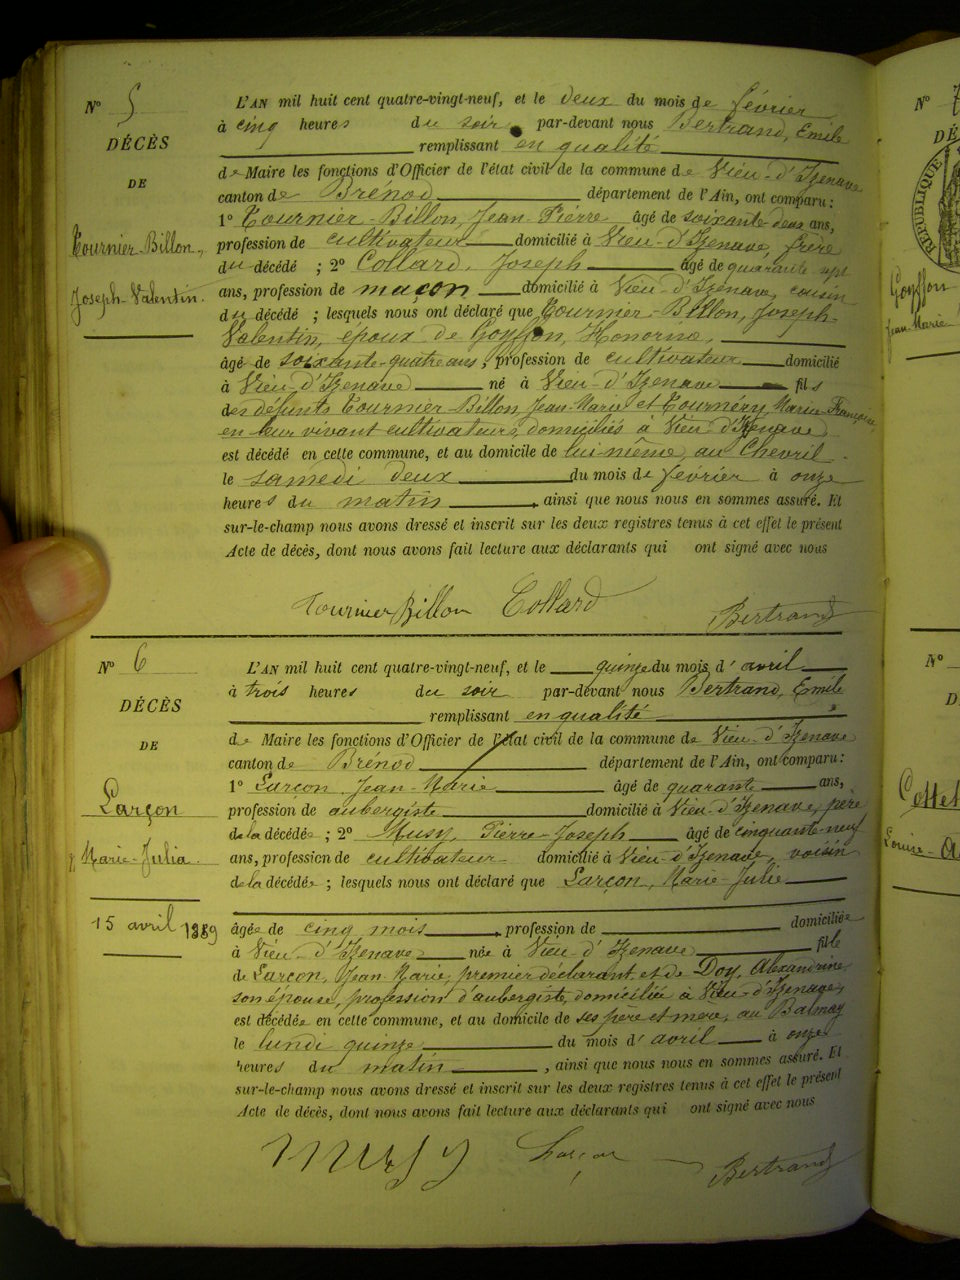 N° 5
DÉCÈS
DE
Tournier-Billon,
Joseph Valentin.
L'AN mil huit cent quatre-vingt-neuf, et le deux du mois de février
à cinq heures du soir par-devant nous Bertrand, Emile
remplissant en qualité
de Maire les fonctions d'Officier de l'état civil de la commune de Vieu-d'Izenave
canton de Brénod département de l'Ain, ont comparu :
1° Tournier-Billon, Jean-Pierre âgé de soixante deux ans,
profession de cultivateur domicilié à Vieu-d'Izenave, frère
du décédé ; 2° Collard, Joseph âgé de quarante sept
ans, profession de maçon domicilié à Vieu-d'Izenave, cousin
du décédé ; lesquels nous ont déclaré que Tournier-Billon, Joseph-
Valentin, époux de Goyffon, Honorine,
âgé de soixante-quatre ans, profession de cultivateur domicilié
à Vieu-d'Izenave né à Vieu-d'Izenave fils
des défunts Tournier-Billon, Jean-Marie et Tournéry, Marie-Françoise,
en leur vivant cultivateurs, domiciliés à Vieu d'Izenave
est décédé en cette commune, et au domicile de lui-même, au Chevril
le samedi deux du mois de février à onze
heures du matin, ainsi que nous nous en sommes assuré. Et
sur-le-champ nous avons dressé et inscrit sur les deux registres tenus à cet effet le présent
Acte de décès, dont nous avons fait lecture aux déclarants qui ont signé avec nous
Tournier Billon Collard Bertrand
N° 6
DÉCÈS
DE
Larçon
Marie-Julia.
15 avril 1889
L'AN mil huit cent quatre-vingt-neuf, et le quinze du mois d'avril
à trois heures du soir par-devant nous Bertrand, Emile
remplissant en qualité
de Maire les fonctions d'Officier de l'état civil de la commune de Vieu-d'Izenave
canton de Brénod département de l'Ain, ont comparu :
1° Larçon, Jean-Marie âgé de quarante ans,
profession de aubergiste domicilié à Vieu-d'Izenave, père
de la décédée ; 2° Musy, Pierre-Joseph âgé de cinquante-neuf
ans, profession de cultivateur domicilié à Vieu-d'Izenave, voisin
de la décédée ; lesquels nous ont déclaré que Larçon, Marie-Julie
âgée de cinq mois, profession de domiciliée
à Vieu-d'Izenave née à Vieu-d'Izenave fille
de Larçon, Jean-Marie, premier déclarant, et de Doy, Alexandrine
son épouse, profession d'aubergiste, domiciliée à Vieu-d'Izenave,
est décédée en cette commune, et au domicile de ses père et mère, au Balmay
le lundi quinze du mois d'avril à onze
heures du matin, ainsi que nous nous en sommes assuré. Et
sur-le-champ nous avons dressé et inscrit sur les deux registres tenus à cet effet le présent
Acte de décès, dont nous avons fait lecture aux déclarants qui ont signé avec nous
Musy Larçon Bertrand
N° 7
RÉPUBLIQUE
Goyffon
Jean-Marie
N°
Louise-